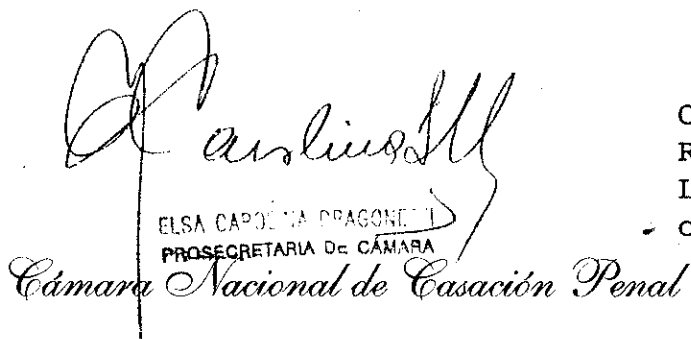 Carolina
ELSA CAROLINA DRAGONETTI
PROSECRETARIA DE CÁMARA
Cámara Nacional de Casación Penal